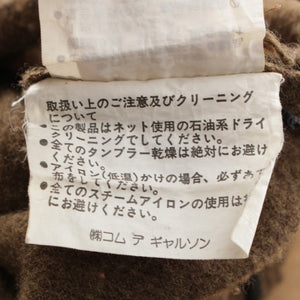 取扱い上のご注意及びクリーニング
について
●この製品はネット使用の石油系ドライ
クリーニングでして
●全てのタンブラー乾燥は絶対にお避け
ください。
●アイロン(低温)かけの場合、必ずあて
布をしてください。
●全てのスチームアイロンの使用は
にお避けください。
㈱コム デ ギャルソン